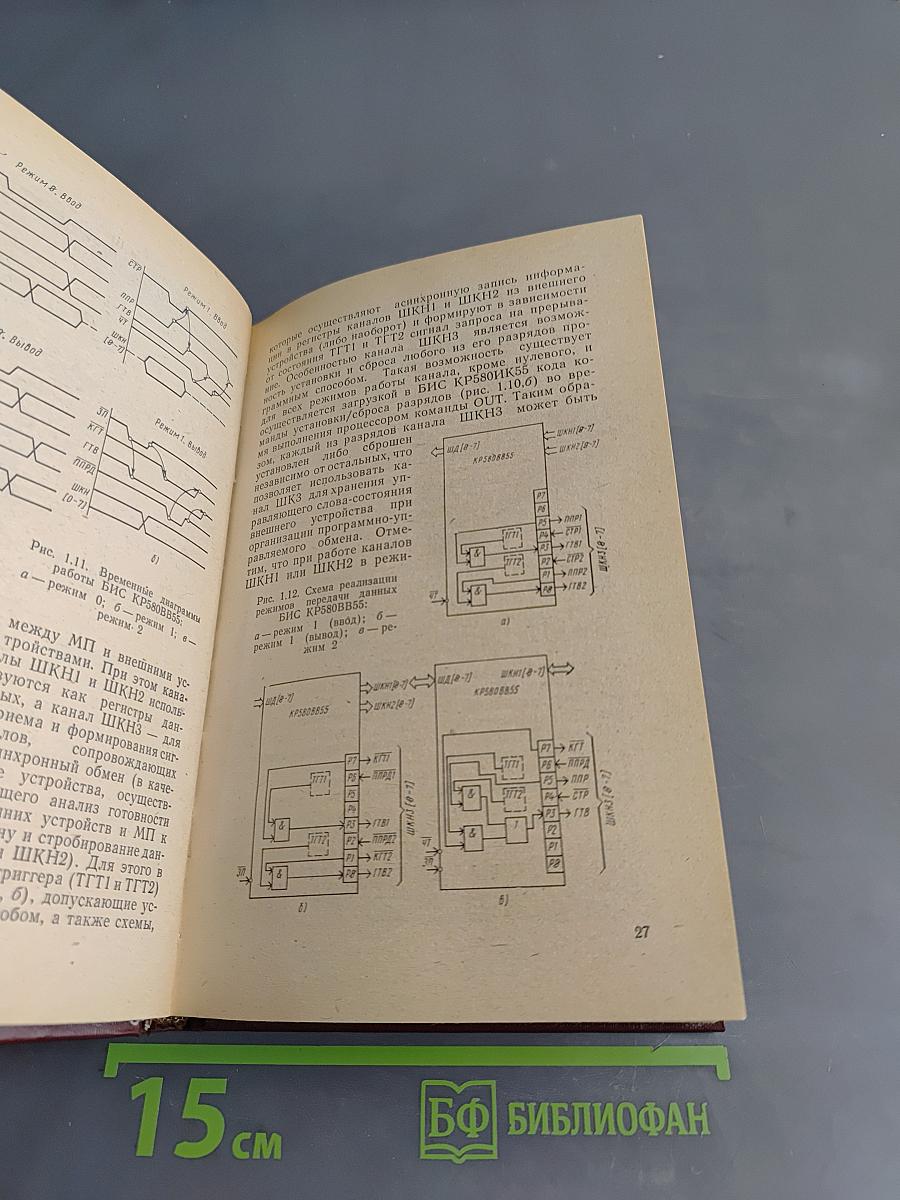 Режим 0. Ввод
СТР
ППР
ГТВ
ЧТ
ШКН
[0-7]
Режим 1. Ввод
Вывод
ЗП
КГТ
ГТВ
ППРД
ШКН
[0-7]
Режим 1. Вывод
б)
Рис. 1.11. Временные диаграммы
работы БИС КР580ВВ55:
а — режим 0; б — режим 1; в —
режим 2
между МП и внешними ус-
тройствами. При этом кана-
лы ШКН1 и ШКН2 исполь-
зуются как регистры дан-
ных, а канал ШКН3 — для
приема и формирования сиг-
налов, сопровождающих
синхронный обмен (в каче-
устройства, осуществ-
щего анализ готовности
них устройств и МП к
ну и стробирование дан-
и ШКН2). Для этого в
триггера (ТГТ1 и ТГТ2)
, б), допускающие ус-
собом, а также схемы,
которые осуществляют асинхронную запись информа-
ции в регистры каналов ШКН1 и ШКН2 из внешнего
устройства (либо наоборот) и формируют в зависимости
от состояния ТГТ1 и ТГТ2 сигнал запроса на прерыва-
ние. Особенностью канала ШКН3 является возмож-
ность установки и сброса любого из его разрядов про-
граммным способом. Такая возможность существует
для всех режимов работы канала, кроме нулевого, и
осуществляется загрузкой в БИС КР580ИК55 кода ко-
манды установки/сброса разрядов (рис. 1.10,б) во вре-
мя выполнения процессором команды OUT. Таким обра-
зом, каждый из разрядов канала ШКН3 может быть
установлен либо сброшен
независимо от остальных, что
позволяет использовать ка-
нал ШК3 для хранения уп-
равляющего слова-состояния
внешнего устройства при
организации программно-уп-
равляемого обмена. Отме-
тим, что при работе каналов
ШКН1 или ШКН2 в режи-
Рис. 1.12. Схема реализации
режимов передачи данных
БИС КР580ВВ55:
а — режим 1 (ввод); б —
режим 1 (вывод); в — ре-
жим 2
ШД[0-7]
КР580ВВ55
ШКН1[0-7]
ШКН2[0-7]
P7
P6
P5
P4
P3
P2
P1
P0
ТГТ1
ТГТ2
&
&
ППР1
СТР1
ГТВ1
СТР2
ППР2
ГТВ2
ШКН3[0-7]
ЧТ
а)
ШД[0-7]
КР580ВВ55
ШКН1[0-7]
ШКН2[0-7]
P7
P6
P5
P4
P3
P2
P1
P0
ТГТ1
ТГТ2
&
&
КГТ1
ППРД1
ГТВ1
ППРД2
КГТ2
ГТВ2
ШКН3[0-7]
ЗП
б)
ШД[0-7]
ШКН1[0-7]
КР580ВВ55
P7
P6
P5
P4
P3
P2
P1
P0
ТГТ1
ТГТ2
&
&
1
КГТ
ППРД
ППР
СТР
ГТВ
ШКН3[0-7]
ЧТ
ЗП
в)
27
15 см
БФ БИБЛИОФАН